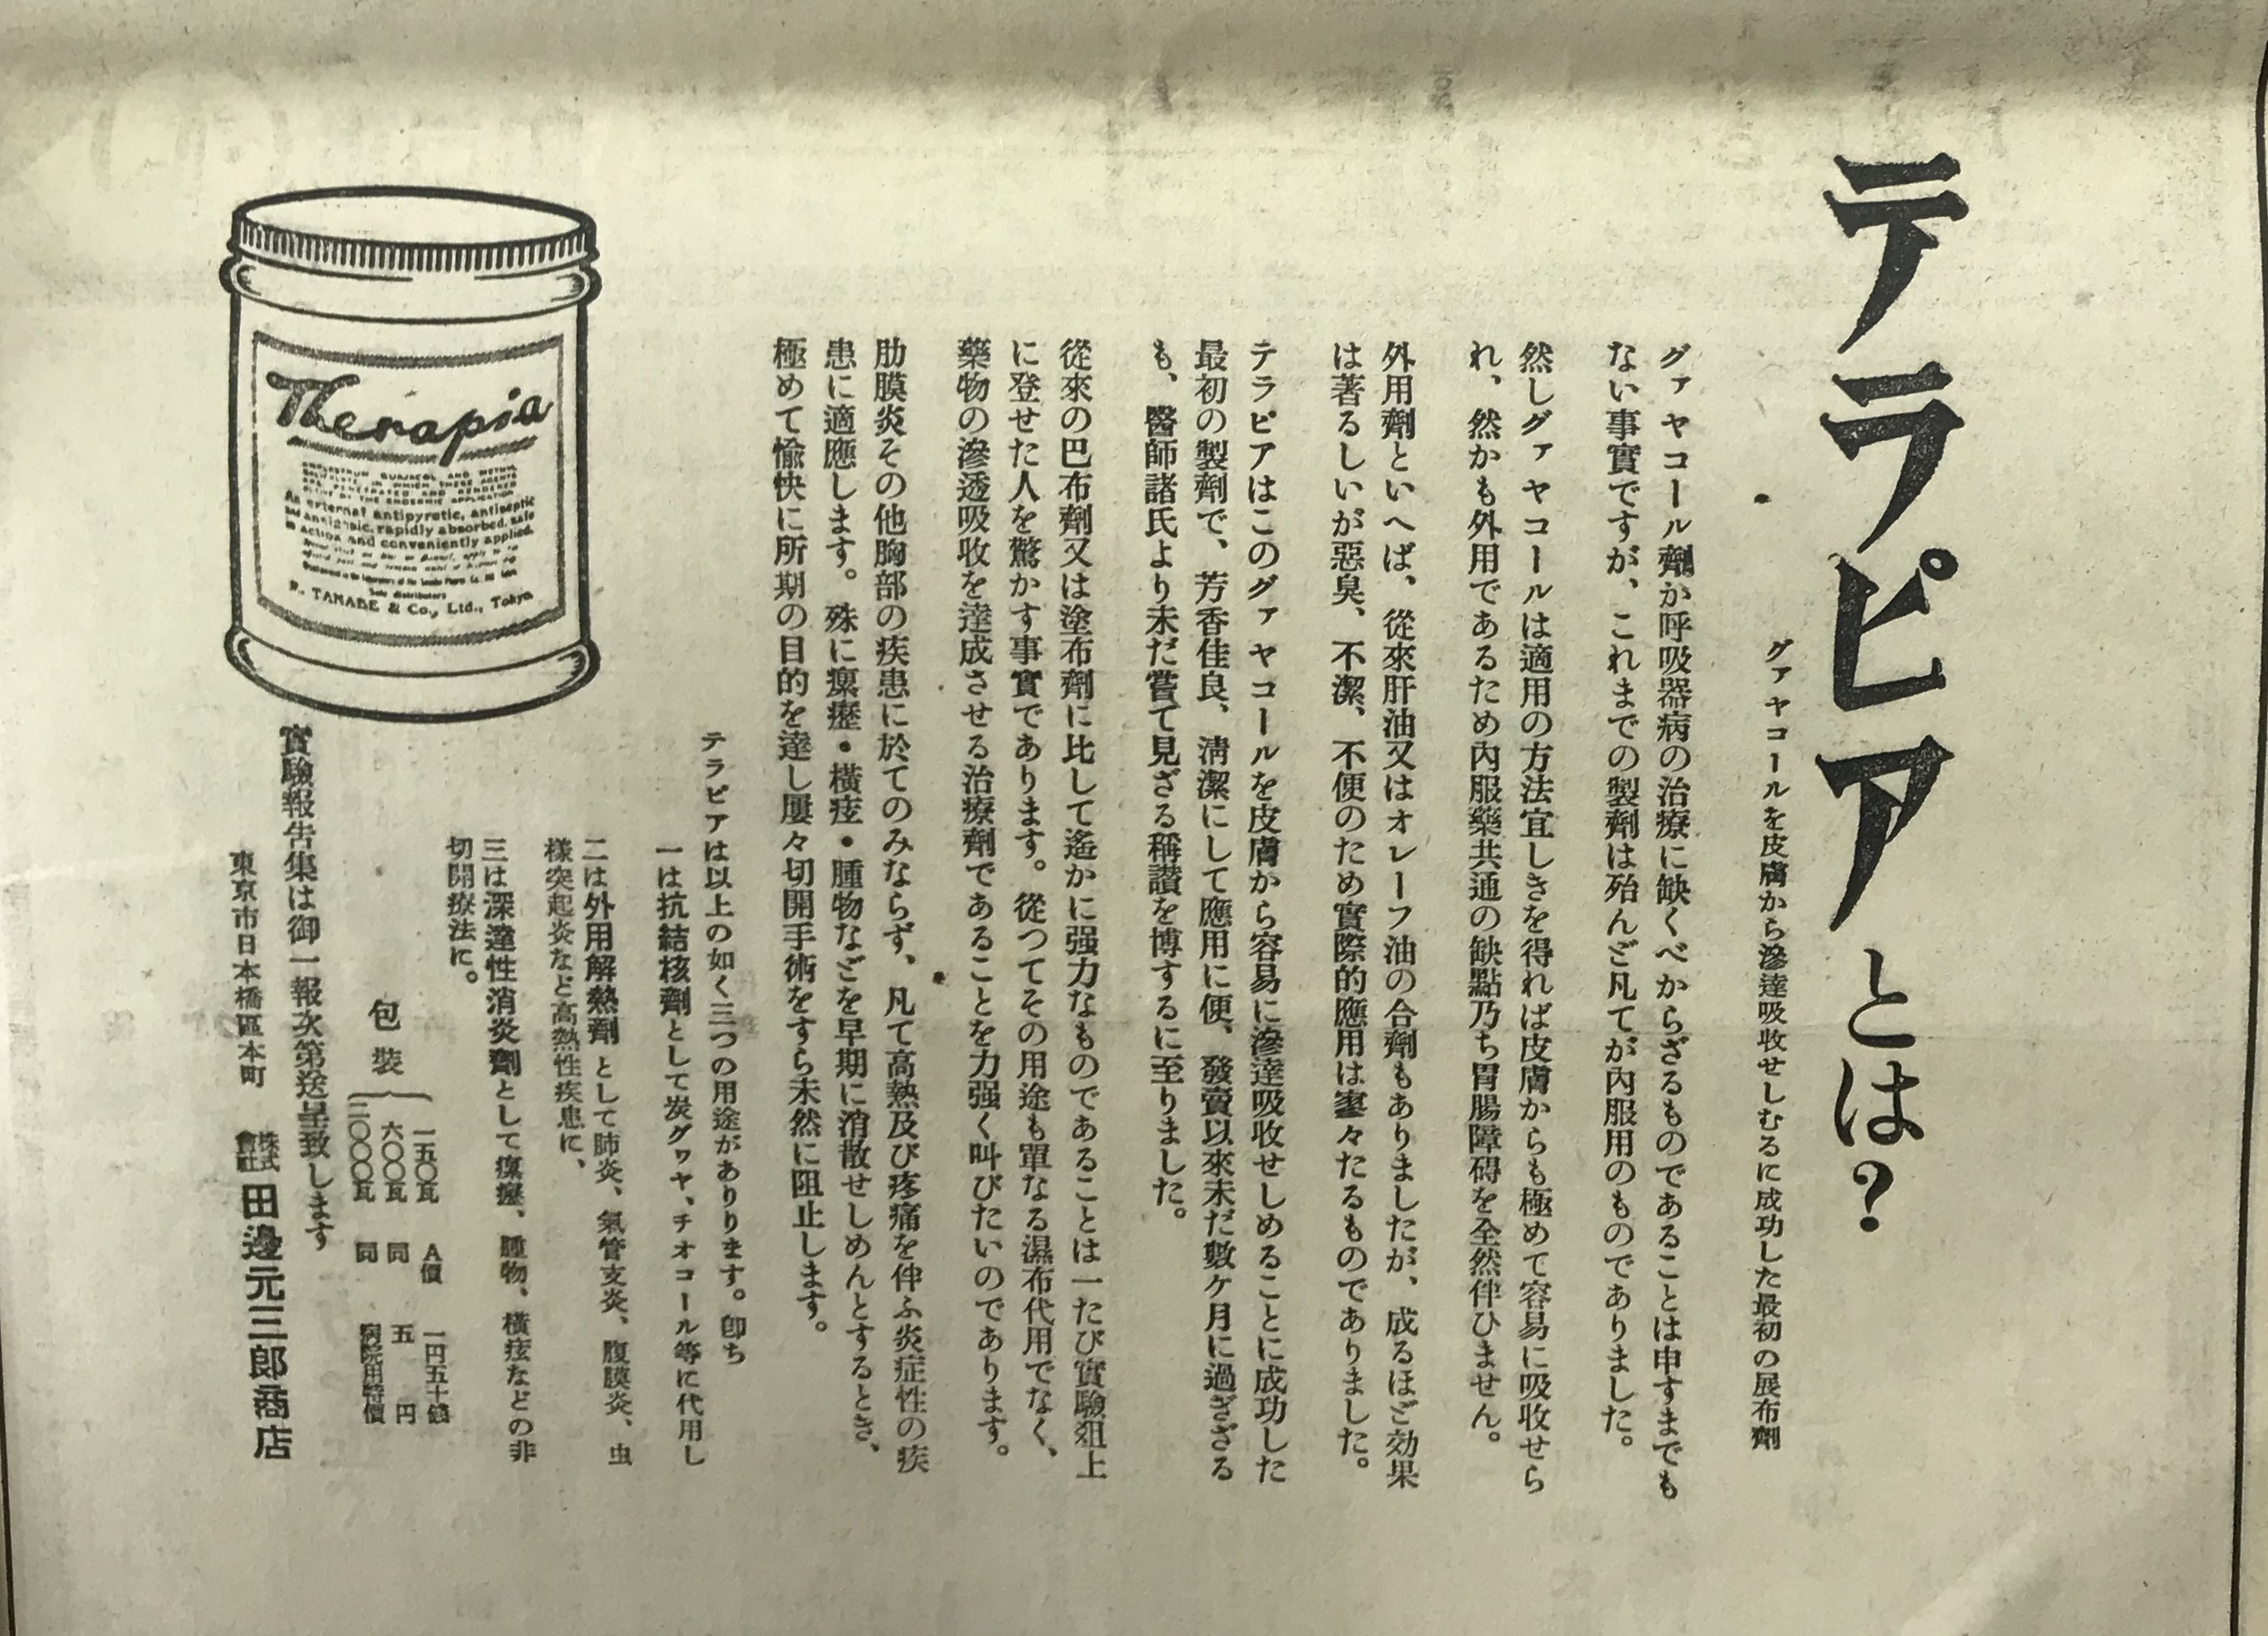 テラピアとは？
グァヤコールを皮膚から滲達吸收せしむるに成功した最初の展布劑
グァヤコール劑か呼吸器病の治療に缺くべからざるものであることは申すまでも
ない事實ですが、これまでの製劑は殆んど凡てが內服用のものでありました。
然しグァヤコールは適用の方法宜しきを得れば皮膚からも極めて容易に吸收せら
れ、然かも外用であるため內服藥共通の缺點乃ち胃腸障碍を全然伴ひません。
外用劑といへば、從來肝油又はオレーフ油の合劑もありましたが、成るほど効果
は著るしいが惡臭、不潔、不便のため實際的應用は寥々たるものでありました。
テラピアはこのグァヤコールを皮膚から容易に滲達吸收せしめることに成功した
最初の製劑で、芳香佳良、淸潔にして應用に便、發賣以來未だ數ケ月に過ぎざる
も、醫師諸氏より未だ嘗て見ざる稱讃を博するに至りました。
從來の巴布劑又は塗布劑に比して遙かに强力なものであることは一たび實驗俎上
に登せた人を驚かす事實であります。從つてその用途も單なる濕布代用でなく、
藥物の滲透吸收を達成させる治療劑であることを力强く叫びたいのであります。
肋膜炎その他胸部の疾患に於てのみならず、凡て高熱及び疼痛を伴ふ炎症性の疾
患に適應します。殊に瘰癧・橫痃・腫物などを早期に消散せしめんとするとき、
極めて愉快に所期の目的を達し屢々切開手術をすら未然に阻止します。
テラピアは以上の如く三つの用途がありります。卽ち
一は抗結核劑として炭グワヤ、チオコール等に代用し
二は外用解熱劑として肺炎、氣管支炎、腹膜炎、虫
樣突起炎など高熱性疾患に、
三は深達性消炎劑として瘰癧、腫物、橫痃などの非
切開療法に。
包裝
一五〇瓦 A價 一円五十錢
六〇〇瓦 同 五円
二〇〇〇瓦 同 病院用特價
實驗報告集は御一報次第送呈致します
東京市日本橋區本町 株式會社 田邊元三郞商店
Therapia
GUAJACOL AND METHYL
IN WHICH THESE AGENTS
ARE PENETRATED AND RENDERED
BY THE ENDERMIC APPLICATION
An external antipyretic, antiseptic
and analgesic, rapidly absorbed, safe
in action and conveniently applied.
Sole distributors
TANABE & Co., Ltd., Tokyo